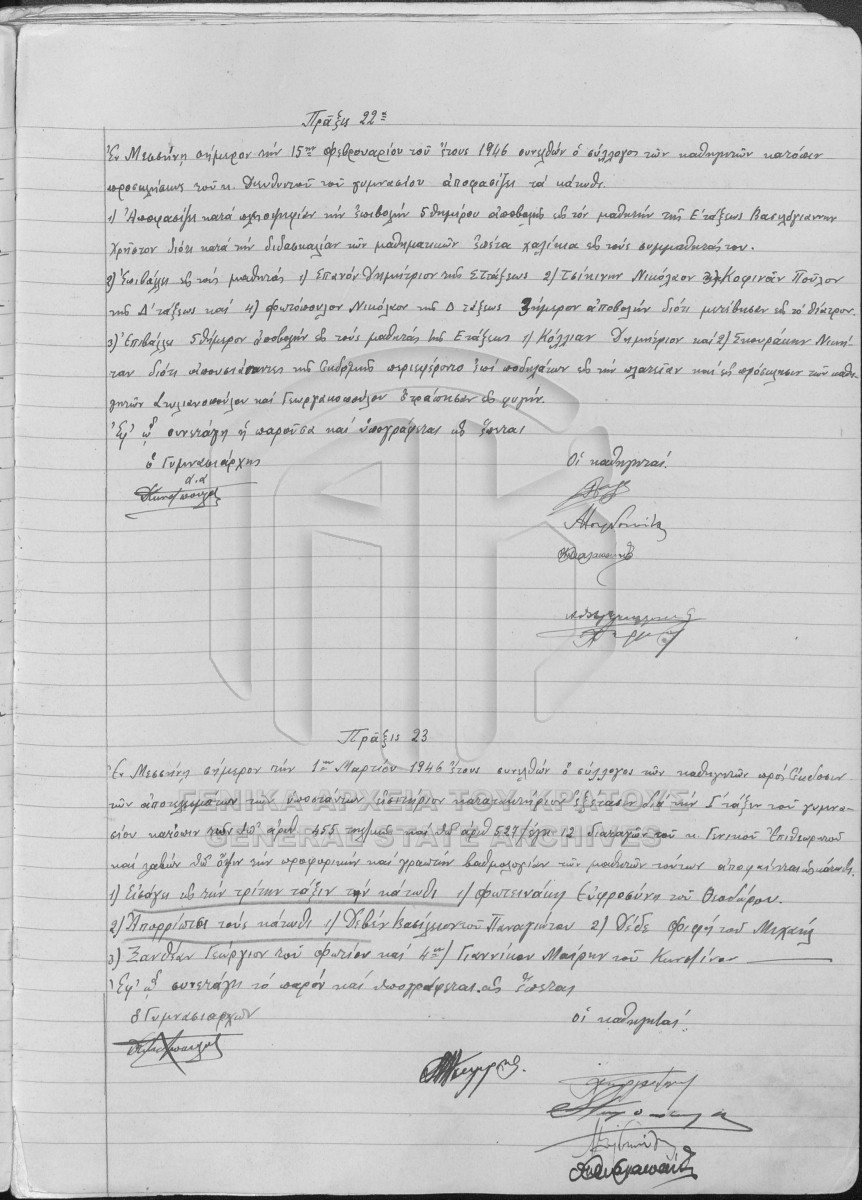 Πρᾶξις 22α
Ἐν Μεσσήνῃ σήμερον τὴν 15ην Φεβρουαρίου τοῦ ἔτους 1946 συνελθὼν ὁ σύλλογος τῶν καθηγητῶν κατόπιν
προσκλήσεως τοῦ κ. Διευθυντοῦ τοῦ γυμνασίου ἀποφασίζει τὰ κάτωθι.
1) Ἀποφασίζει κατὰ πλειοψηφίαν τὴν ἐπιβολὴν 5θημέρου ἀποβολῆς εἰς τὸν μαθητὴν τῆς Ε τάξεως Βασιλόγιαννην
Χρῆστον διότι κατὰ τὴν διδασκαλίαν τῶν μαθηματικῶν ἐπέτα χαλίκια εἰς τοὺς συμμαθητάς του.
2) Ἐπιβάλλει εἰς τοὺς μαθητὰς 1) Σπανὸν Δημήτριον τῆς Στ τάξεως 2) Τσίκινην Νικόλαον 3) Κοφινᾶν Παῦλον
τῆς Δ′ τάξεως καὶ 4) Φωτόπουλον Νικόλαον τῆς Δ τάξεως 3ήμερον ἀποβολὴν διότι μετέβησαν εἰς τὸ θέατρον.
3) Ἐπιβάλλει 5θήμερον ἀποβολὴν εἰς τοὺς μαθητὰς τῆς Ε τάξεως 1) Κόλλιαν Δημήτριον καὶ 2) Σκουράκην Νικήταν
διότι ἀπουσιάσαντες τῆς ἐκδρομῆς περιεφέροντο ἐπὶ ποδηλάτων εἰς τὴν πλατεῖαν καὶ εἰς πρόσκλησιν τῶν καθηγητῶν
Στυλιανοπούλου καὶ Γεωργακοπούλου ἐτράπησαν εἰς φυγήν.
Ἐφ' ᾧ συνετάγη ἡ παροῦσα καὶ ὑπογράφεται ὡς ἕπεται
ὁ Γυμνασιάρχης
α.α
Οἱ καθηγηταί
ΓΕΝΙΚΑ ΑΡΧΕΙΑ ΤΟΥ ΚΡΑΤΟΥΣ
GENERAL STATE ARCHIVES
Πρᾶξις 23
Ἐν Μεσσήνῃ σήμερον τὴν 1ην Μαρτίου 1946 ἔτους συνελθὼν ὁ σύλλογος τῶν καθηγητῶν πρὸς ἔκδοσιν
τῶν ἀποτελεσμάτων τῶν ὑποστάντων εἰσιτήριον κατατακτήριον ἐξέτασιν διὰ τὴν Γ′ τάξιν τοῦ γυμνασίου
κατόπιν τῶν ὑπ' ἀριθ. 455 καὶ ὑπ' ἀριθ 527/ 12 διαταγῶν τοῦ κ. Γενικοῦ Ἐπιθεωρητοῦ
καὶ λαβὼν ὑπ' ὄψιν τὴν προφορικὴν καὶ γραπτὴν βαθμολογίαν τῶν μαθητῶν τούτων
1) Εἰσάγει εἰς τὴν τρίτην τάξιν τὴν κάτωθι 1) Φωτεινάκη Εὐφροσύνη τοῦ Θεοδώρου.
2) Ἀπορρίπτει τοὺς κάτωθι 1) Δεβὲν Βασίλειον τοῦ Παναγιώτου 2) Δέδε Φιφὴ τοῦ Μιχαήλ
3) Ξανθέαν Γεώργιον τοῦ Φωτίου καὶ 4ον) Γιαννίκου Μαίρην τοῦ Κωνσ/ίνου
Ἐφ' ᾧ συνετάγη τὸ παρὸν καὶ ὑπογράφεται ὡς ἕπεται
ὁ Γυμνασιαρχῶν
οἱ καθηγηταί